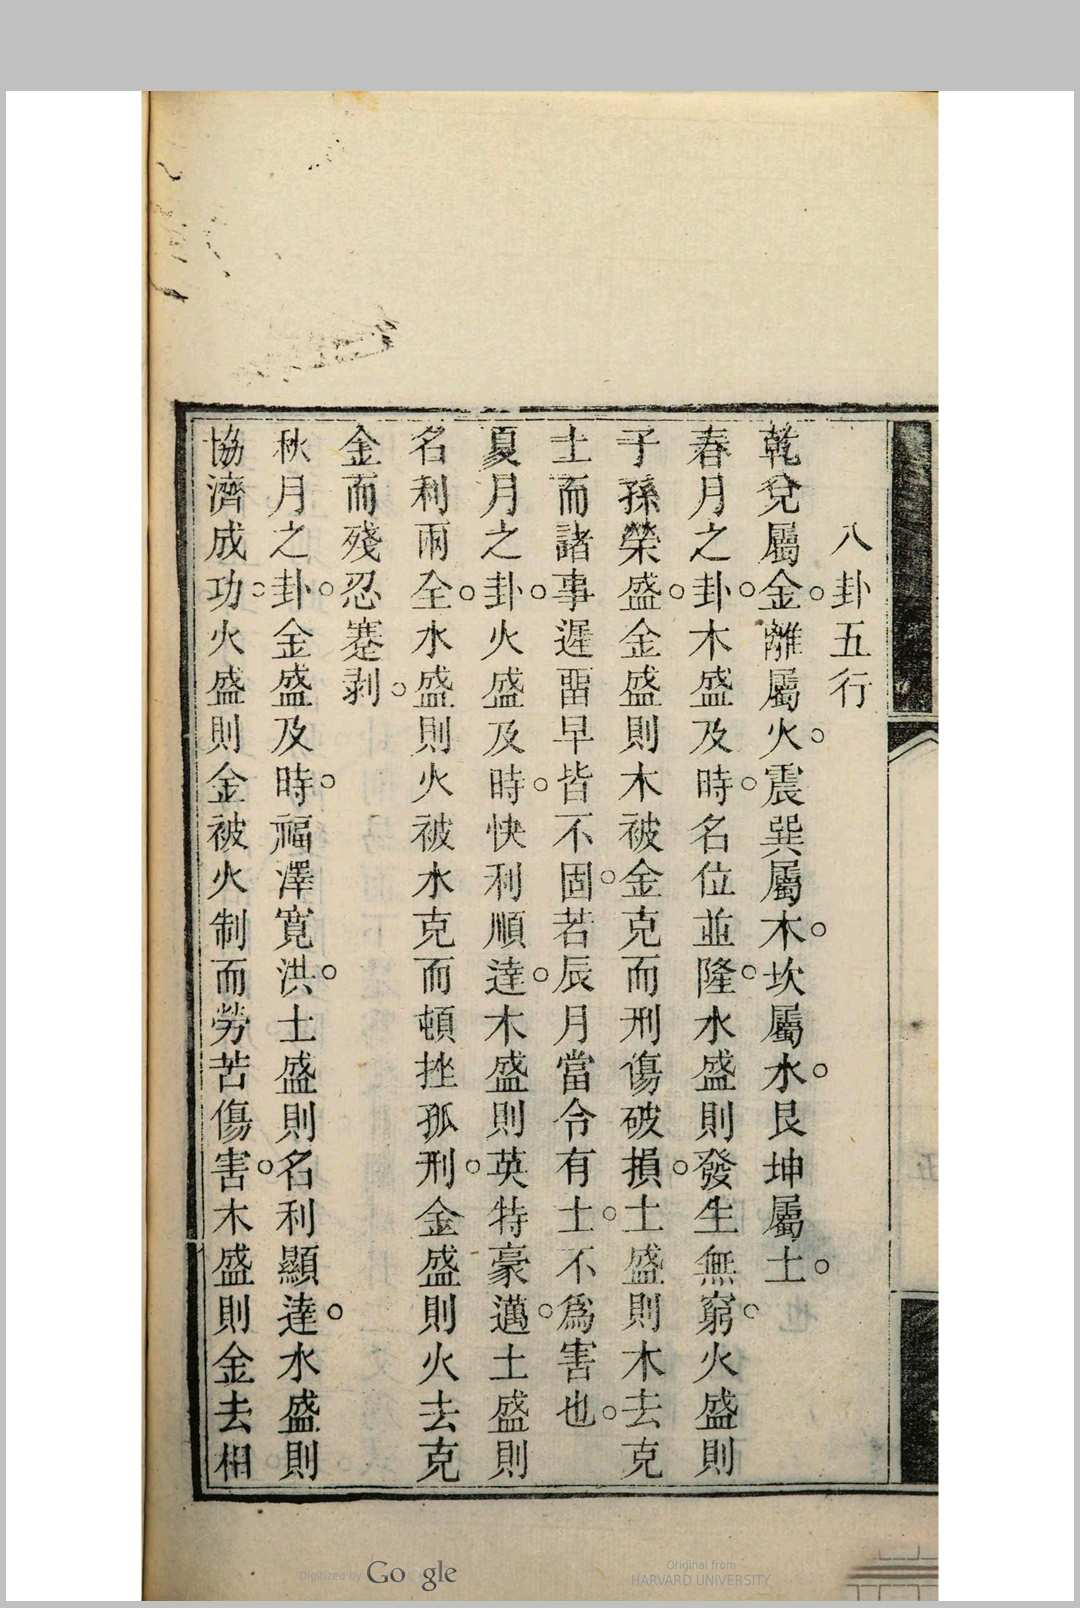 八卦五行
乾兌屬金。離屬火。震巽屬木。坎屬水。艮坤屬土。
春月之卦。木盛及時。名位並隆。水盛則發生無窮。火盛則
子孫榮盛。金盛則木被金克而刑傷破損。土盛則木去克
土而諸事遲畱早皆不固。若辰月當令有土。不爲害也。
夏月之卦。火盛及時。快利順達。木盛則英特豪邁。土盛則
名利兩全。水盛則火被水克而頓挫孤刑。金盛則火去克
金而殘忍蹇剥。
秋月之卦。金盛及時。福澤寛洪。土盛則名利顯達。水盛則
協濟成功。火盛則金被火制而勞苦傷害。木盛則金去相
Digitized by Google
Original from
HARVARD UNIVERSITY